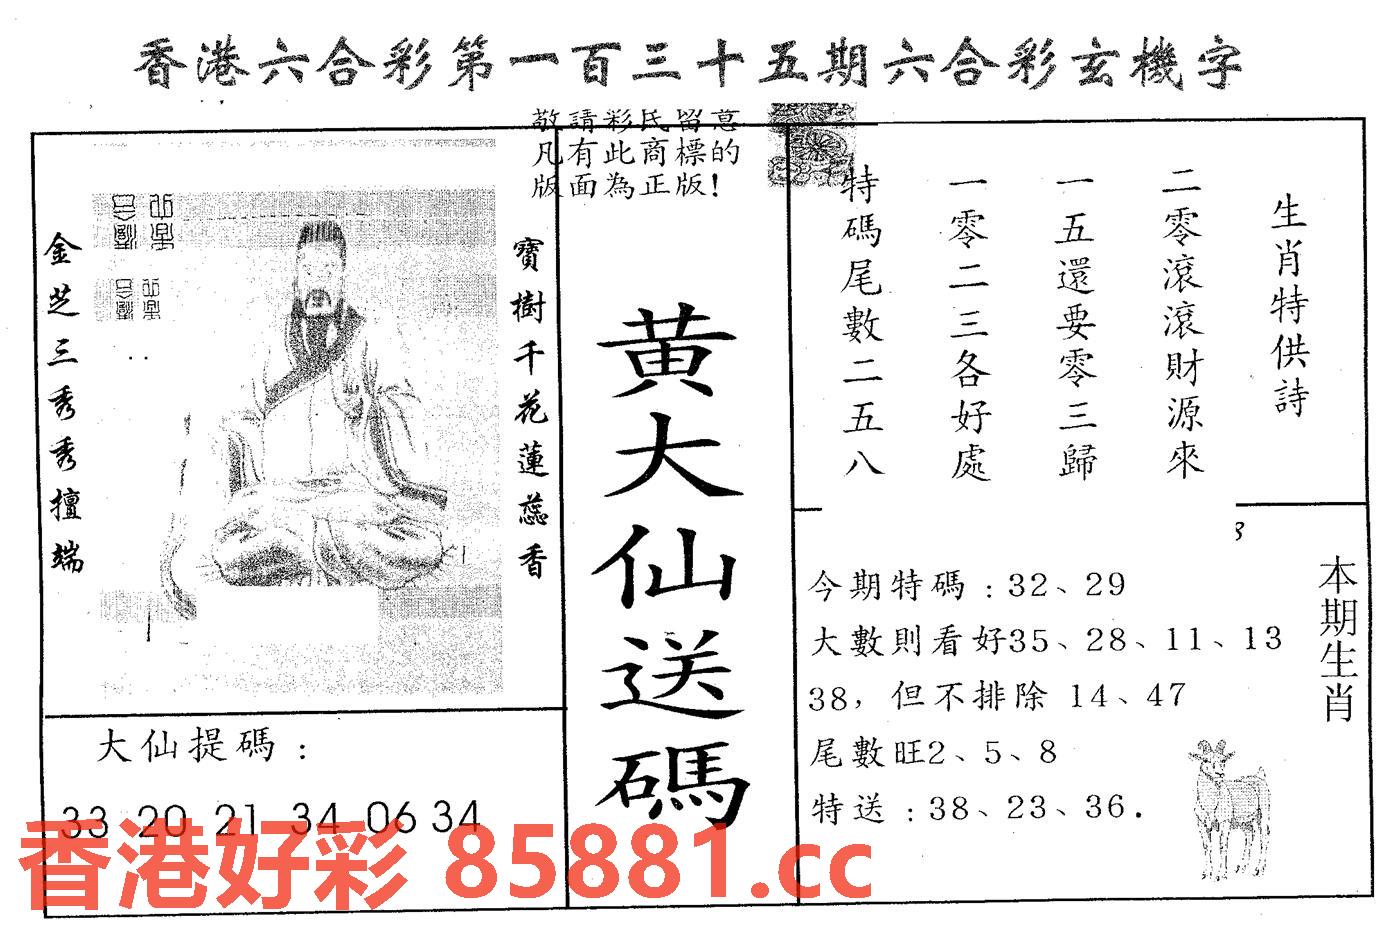 香港六合彩第一百三十五期六合彩玄機字
敬請彩民留意
凡有此商標的
版面為正版!
生肖特供詩
二零滾滾財源來
一五還要零三歸
一零二三各好處
特碼尾數二五八
寶樹千花蓮蕊香
金芝三秀秀擅端
黃大仙送碼
本期生肖
今期特碼:32、29
大數則看好35、28、11、13
38,但不排除 14、47
尾數旺2、5、8
特送:38、23、36.
大仙提碼:
33 20 21 34 06 34
香港好彩 85881.cc